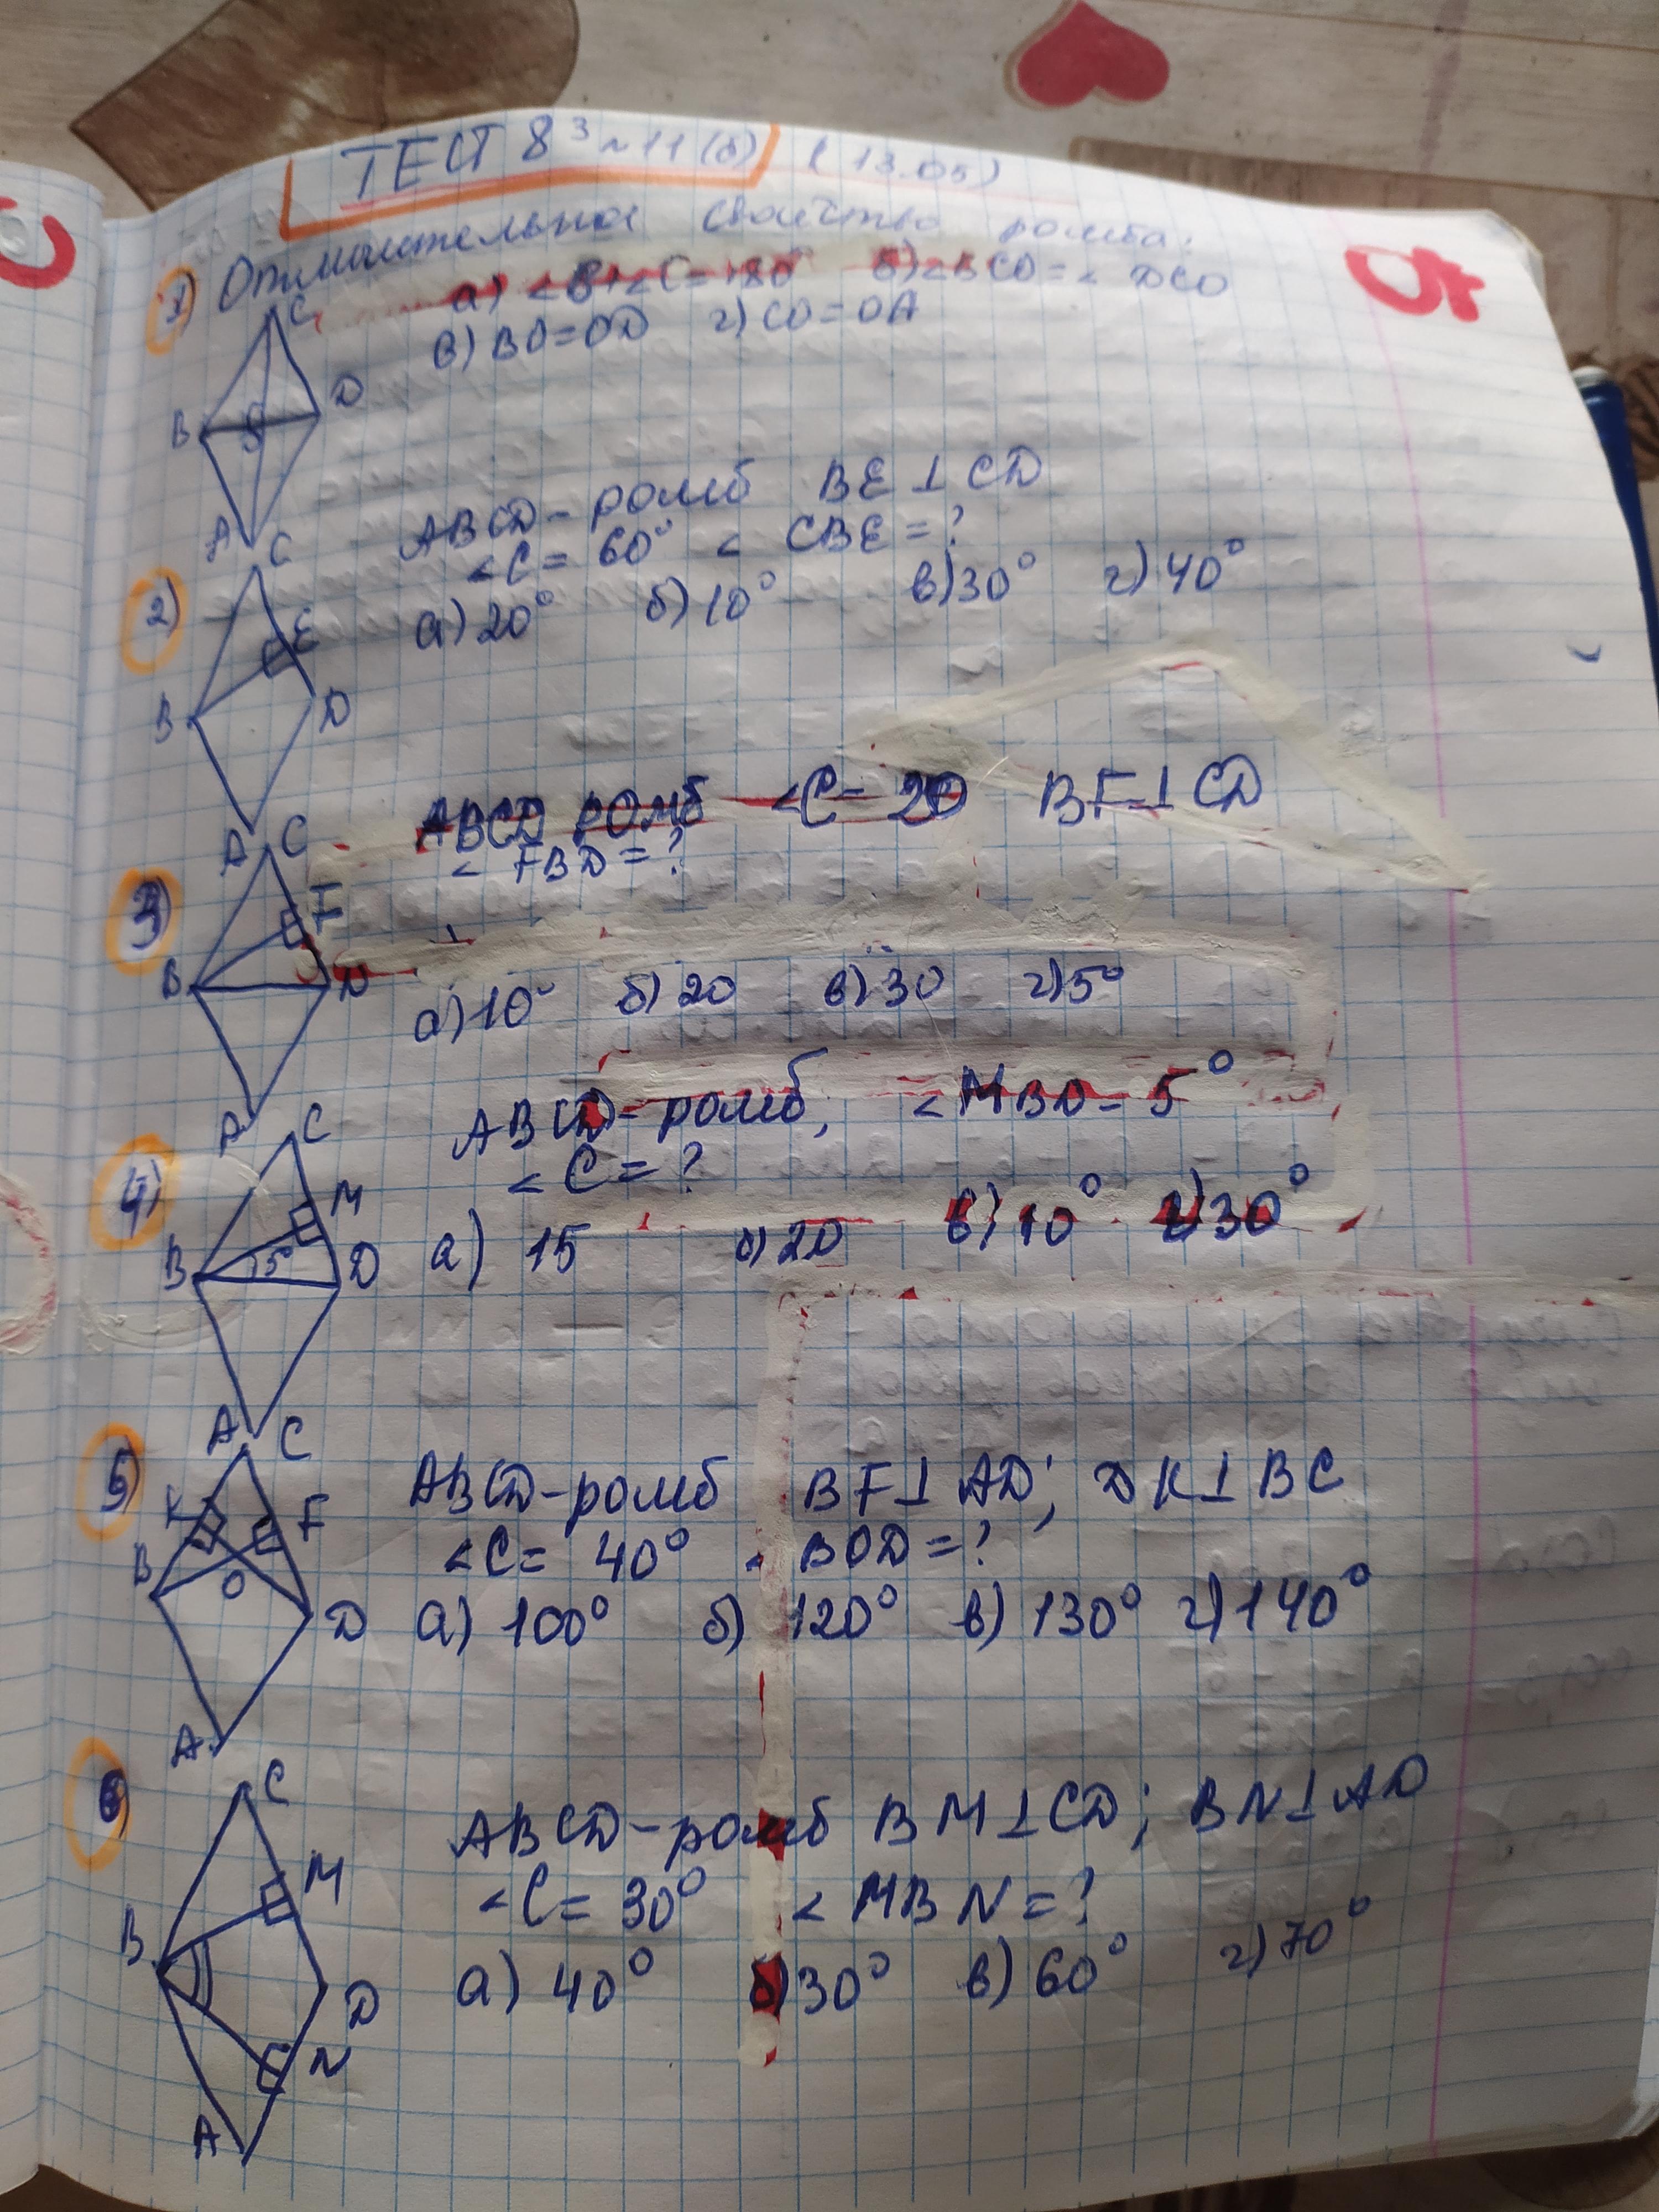 ТЕСТ 8³ №11 (б) (13.05)
1) Отличительное свойство ромба:
а) <B+<C=180° б) <BCO=< DCO
в) BO=OD г) CO=OA
C
B
O
D
A
2)
ABCD-ромб BE⊥CD
<C= 60° < CBE=?
а) 20° б) 10° в) 30° г) 40°
C
E
B
D
A
3)
ABCD ромб <C= 20 BF⊥CD
< FBD=?
а) 10° б) 20 в) 30 г) 5°
C
F
B
D
A
4)
ABCD-ромб, <MBD-5°
<C=?
а) 15 б) 20 в) 10° г) 30°
C
M
B
5
D
A
5)
ABCD-ромб BF⊥AD; DK⊥BC
<C= 40° < BOD=?
а) 100° б) 120° в) 130° г) 140°
C
K
F
B
O
D
A
6)
ABCD-ромб BM⊥CD; BN⊥AD
<C= 30° < MBN=?
а) 40° б) 30° в) 60° г) 70°
C
M
B
D
N
A